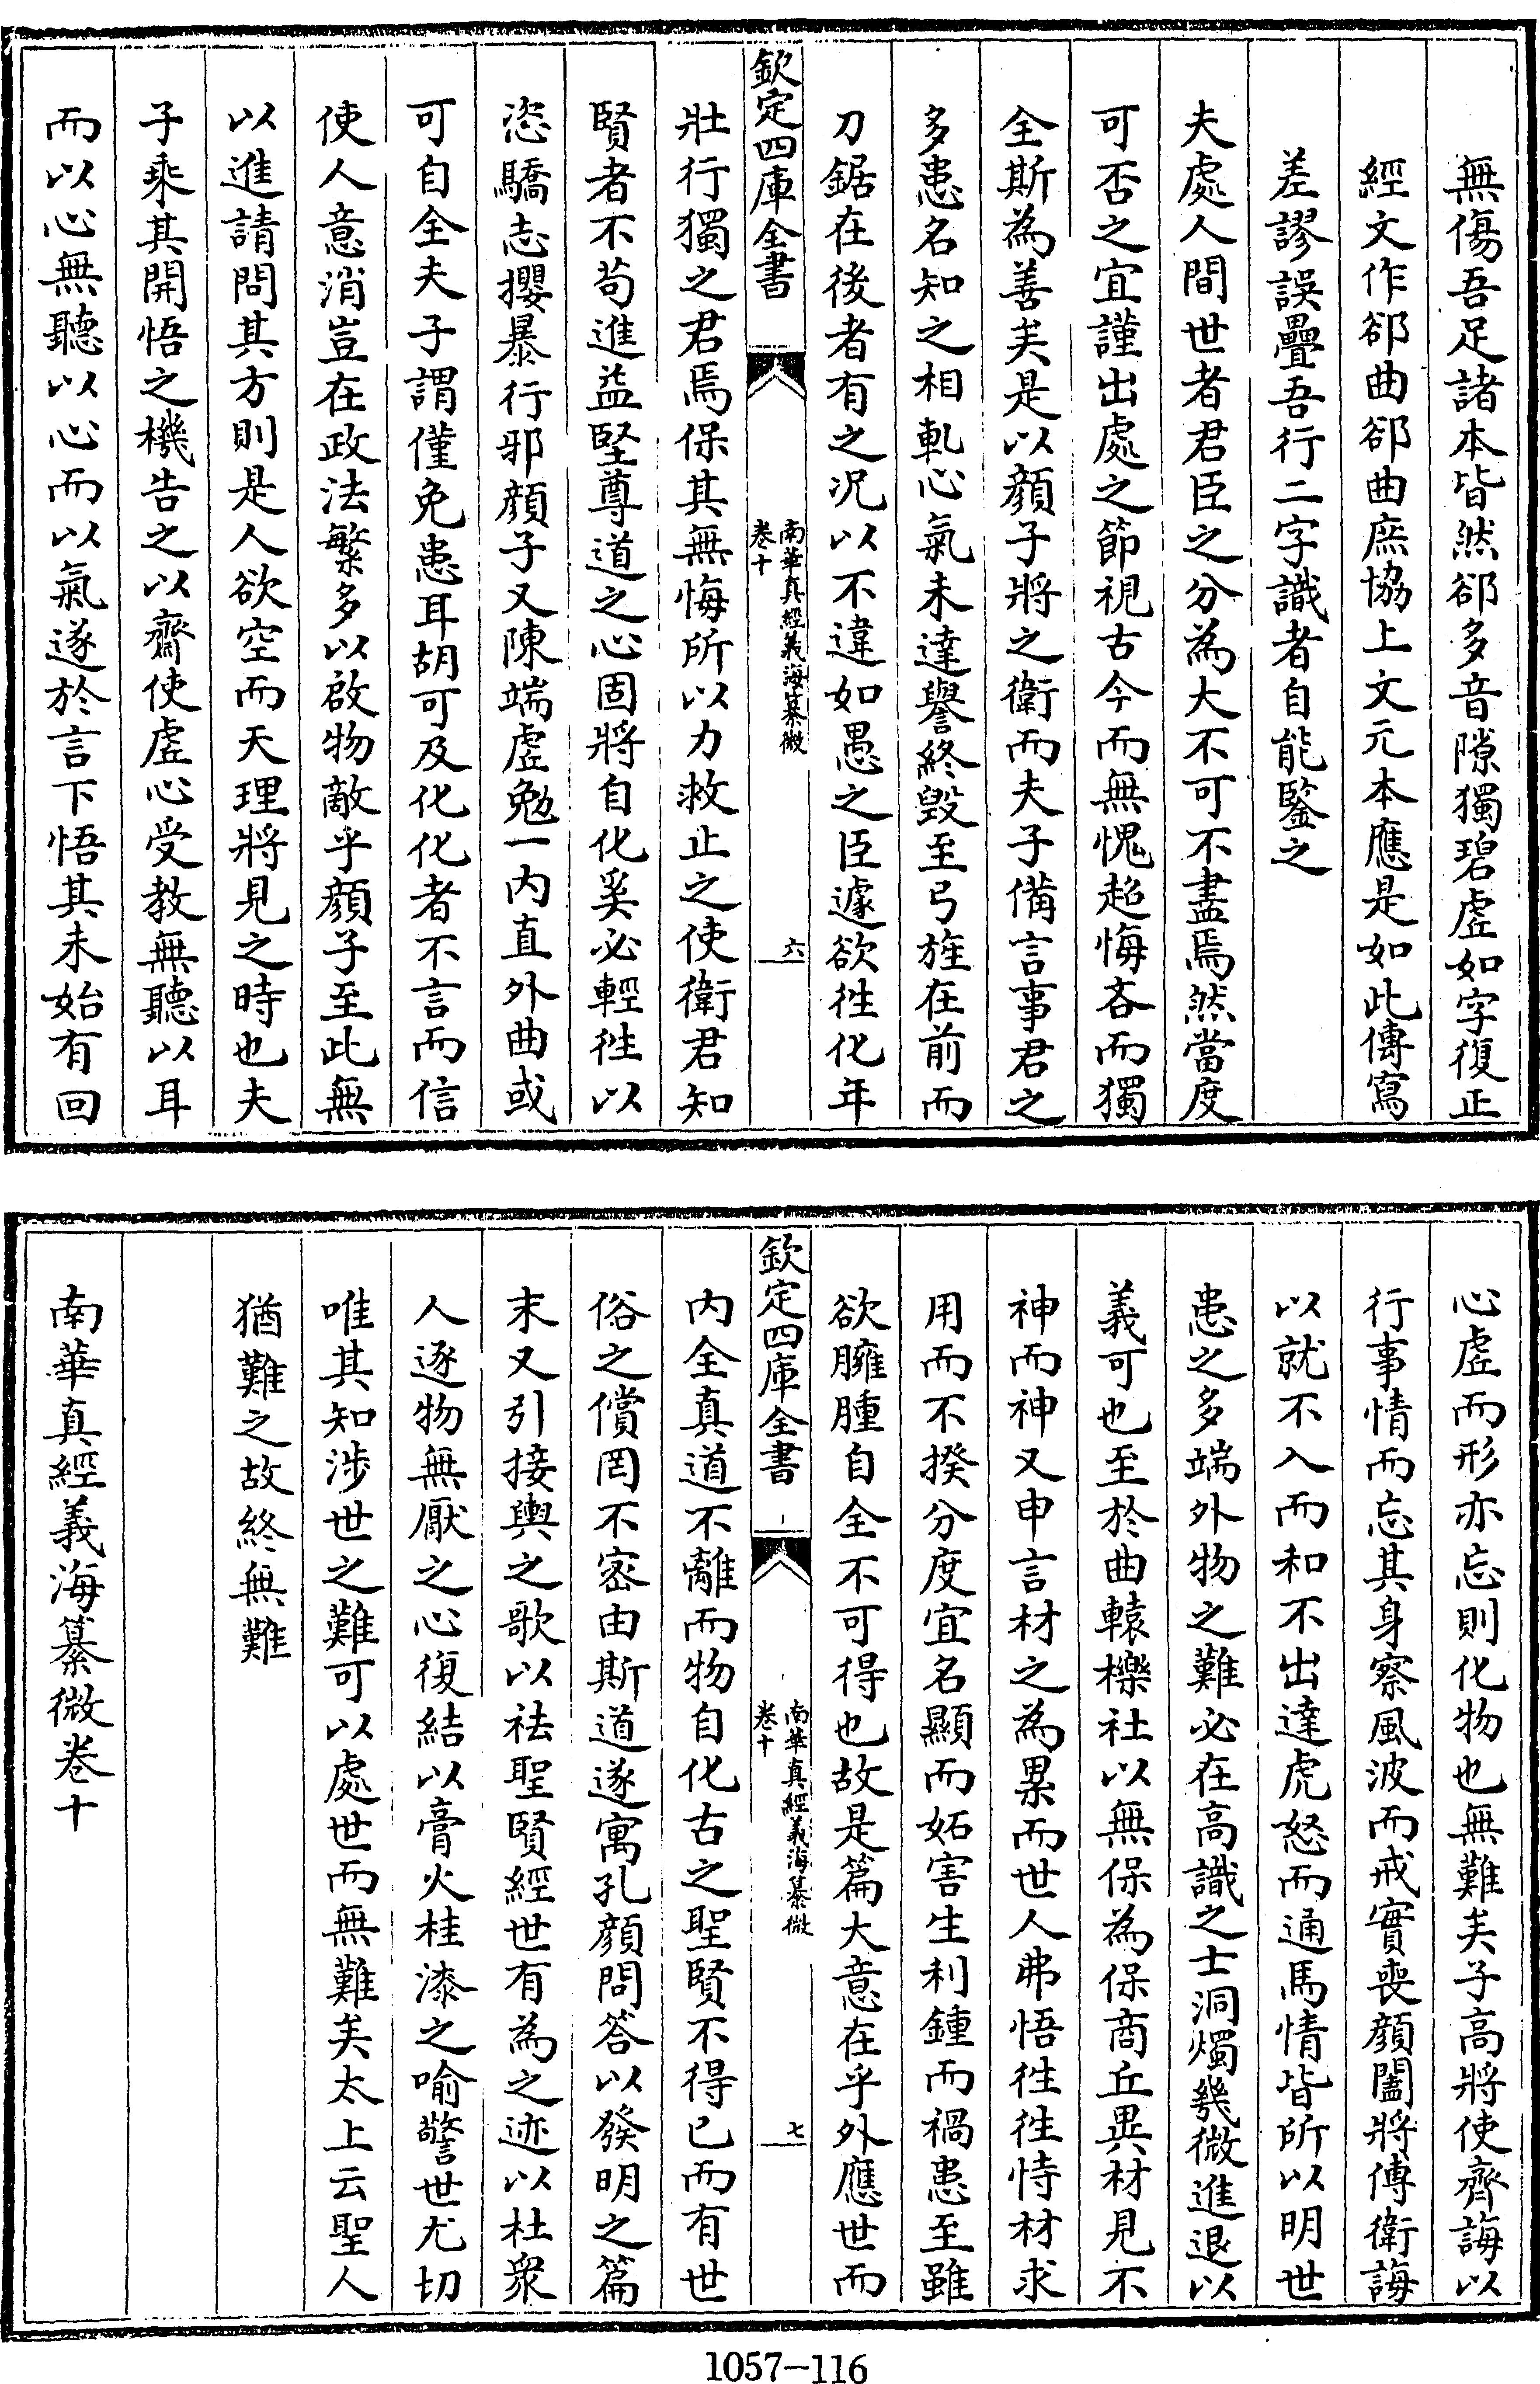 無傷吾足諸本皆然郤多音隙獨碧虛如字復正
經文作郤曲郤曲庶協上文元本應是如此傳寫
差謬誤疊吾行二字識者自能鑒之
夫處人間世者君臣之分為大不可不盡焉然當度
可否之宜謹出處之節視古今而無愧超悔吝而獨
全斯為善矣是以顏子將之衛而夫子備言事君之
多患名知之相軋心氣未達譽終毀至弓旌在前而
刀鋸在後者有之况以不違如愚之臣遽欲徃化年
欽定四庫全書
南華真經義海纂微
卷十
六
壯行獨之君焉保其無悔所以力救止之使衛君知
賢者不苟進益堅尊道之心固將自化奚必輕徃以
恣驕志攖暴行邪顏子又陳端虛勉一内直外曲或
可自全夫子謂僅免患耳胡可及化化者不言而信
使人意消豈在政法繁多以啟物敵乎顏子至此無
以進請問其方則是人欲空而天理將見之時也夫
子乘其開悟之機告之以齋使虛心受教無聽以耳
而以心無聽以心而以氣遂於言下悟其未始有回
心虛而形亦忘忘則化物也無難矣子高將使齊誨以
行事情而忘其身察風波而戒實喪顏闔將傅衛誨
以就不入而和不出達虎怒而通馬情皆所以明世
患之多端外物之難必在高識之士洞燭幾微進退以
義可也至於曲轅櫟社以無保為保商丘異材見不
神而神又申言材之為累而世人弗悟徃徃恃材求
用而不揆分度宜名顯而妬害生利鍾而禍患至雖
欲臃腫自全不可得也故是篇大意在乎外應世而
欽定四庫全書
南華真經義海纂微
卷十
七
内全真道不離而物自化古之聖賢不得已而有世
俗之償罔不密由斯道遂寓孔顏問答以發明之篇
末又引接輿之歌以祛聖賢經世有為之迹以杜衆
人逐物無厭之心復結以膏火桂漆之喻警世尤切
唯其知涉世之難可以處世而無難矣太上云聖人
猶難之故終無難
南華真經義海纂微卷十
1057-116